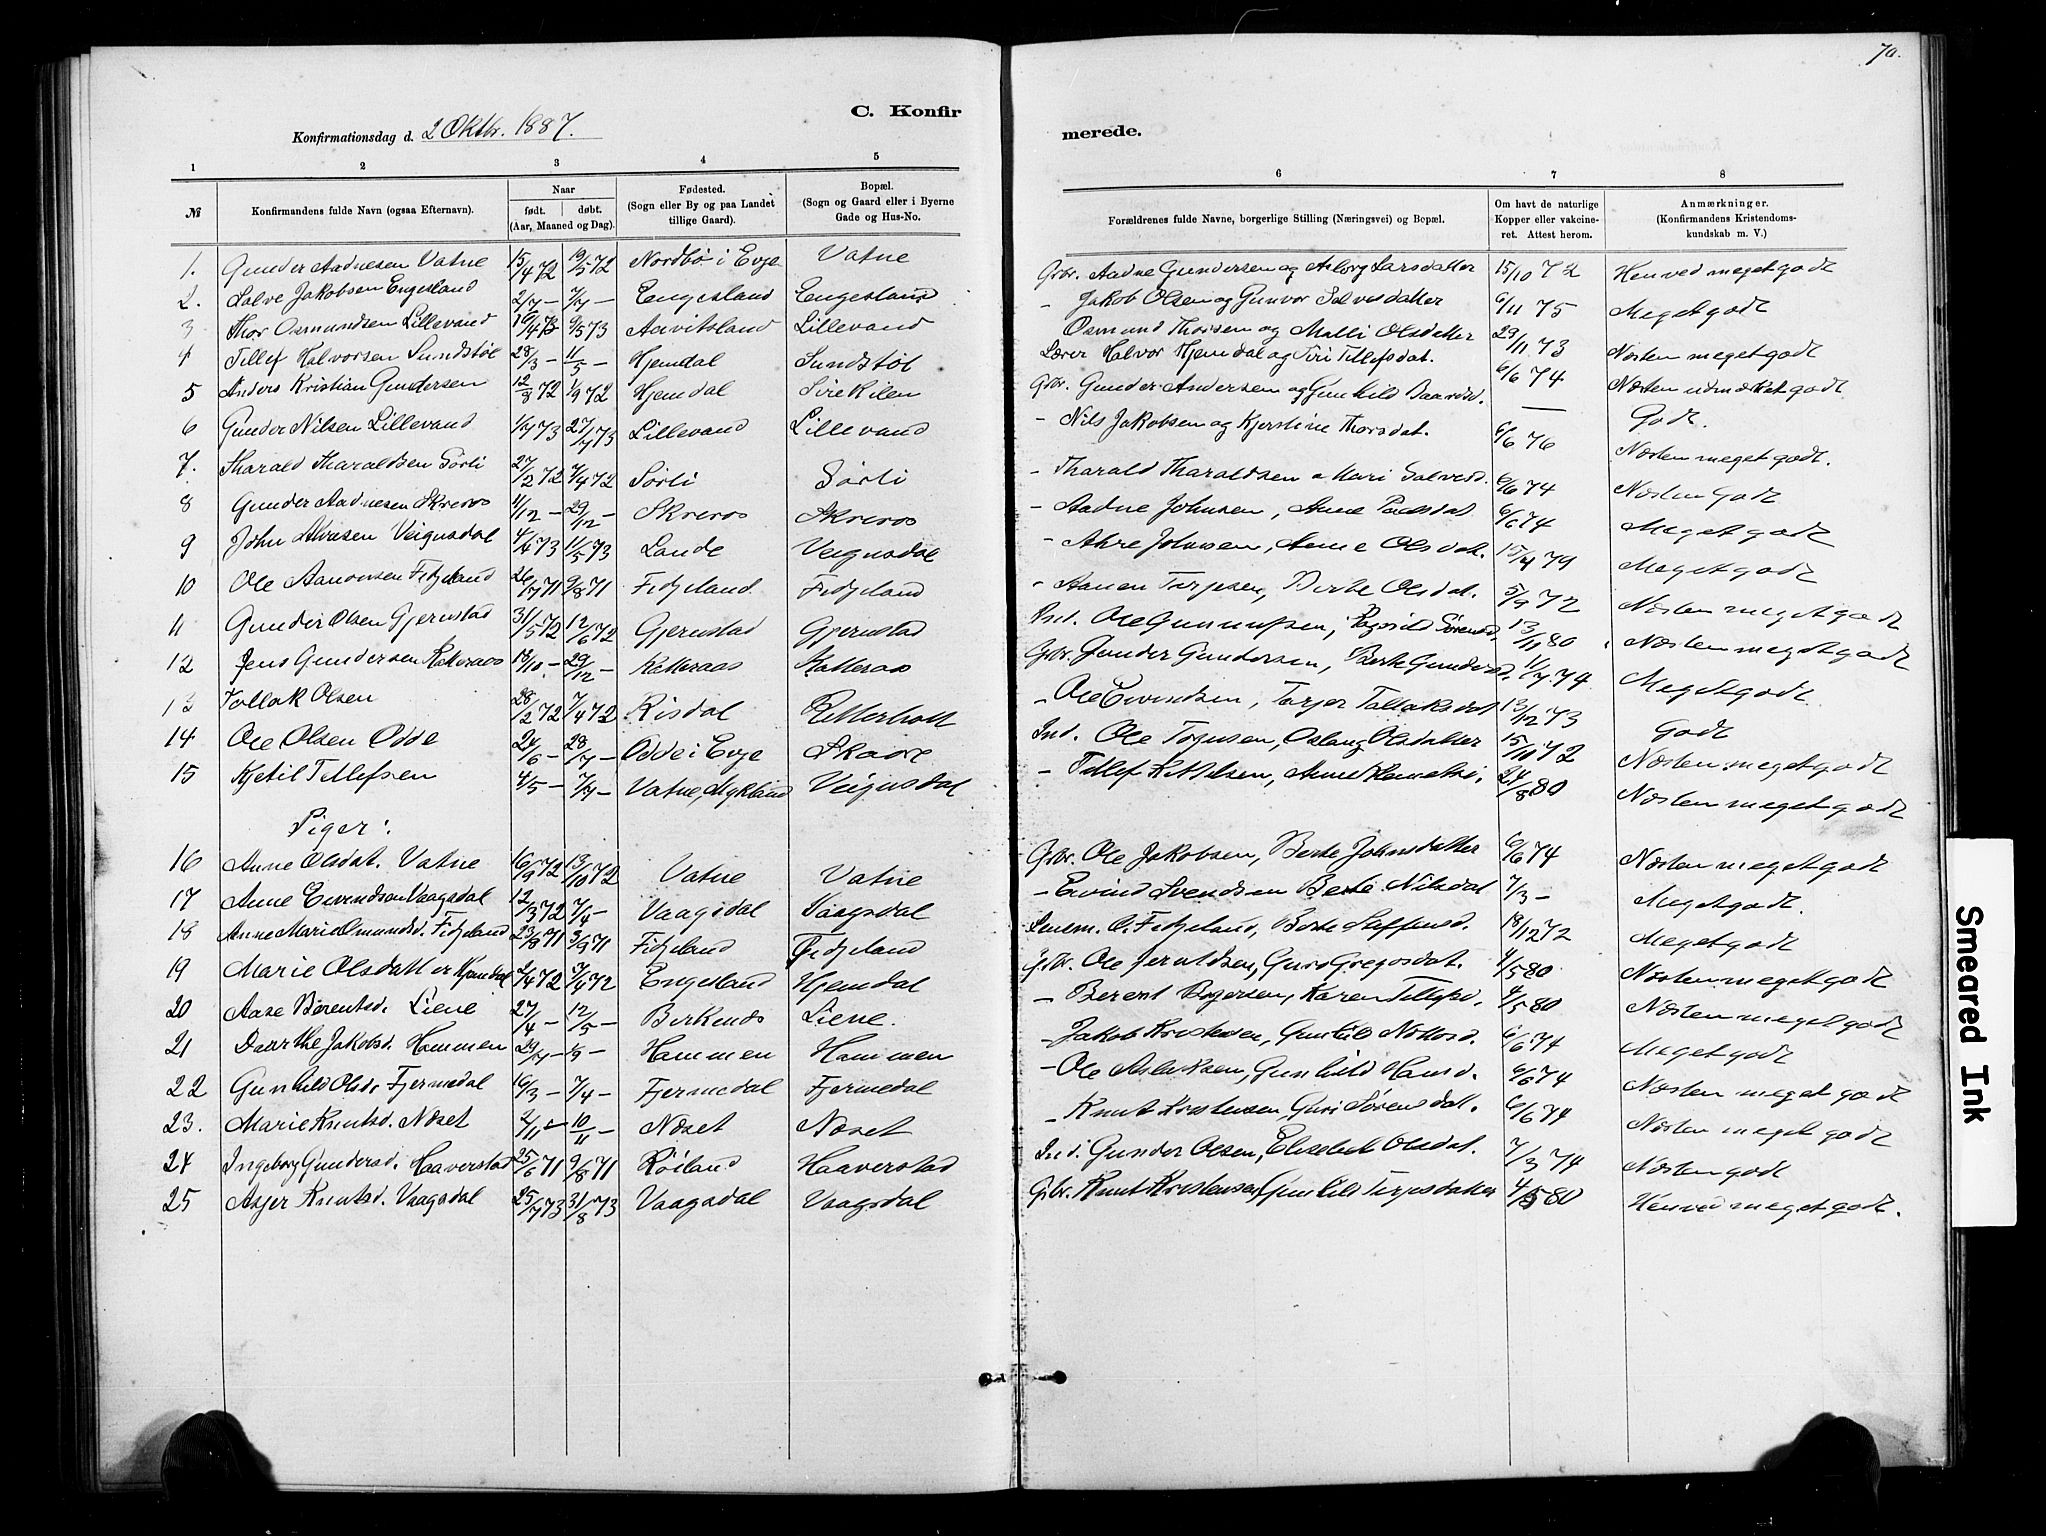 70.
C. Konfir
merede.
Konfirmationsdag d. 2 Oktbr. 1887.
1 2 3 4 5 6 7 8
№ Konfirmandens fulde Navn (ogsaa Efternavn). Naar født. døbt. (Aar, Maaned og Dag). Fødested. (Sogn eller By og paa Landet tillige Gaard). Bopæl. (Sogn og Gaard eller i Byerne Gade og Hus-No. Forældrenes fulde Navne, borgerlige Stilling (Næringsvei) og Bopæl. Om havt de naturlige Kopper eller vakcineret. Attest herom. Anmærkninger. (Konfirmandens Kristendomskundskab m. V.)
1. Gunder Aadnesen Vatne 15/4 72 19/5 72 Nordbø i Evje Vatne Grbr. Aadne Gundersen og Asborg Larsdatter 15/10 72 Henved meget godt
2. Salve Jakobsen Engesland 2/7 – 7/7 – Engesland Engesland – Jakob Olsen og Gunvor Salvesdatter 6/11 75 Meget godt
3 Thor Osmundsen Lillevand 16/4 73 9/5 73 Aavitsland Lillevand Osmund Thorsen og Malli Olsdatter 29/11 73 Næsten meget godt
4 Tellef Halvorsen Sundstøl 28/3 – 11/5 – Hjemdal Sundstøl Lærer Halvor Hjemdal og Siri Tellefsdat. 6/6 74 Næsten udmærket godt
5 Anders Kristian Gundersen 12/8 72 1/9 72 Hjemdal Sirekilen Grbr. Gunder Andersen og Gunhild Baardsd. — Godt.
6 Gunder Nilsen Lillevand 1/7 73 27/7 73 Lillevand Lillevand – Nils Jakobsen og Kjerstine Thorsdat. 6/6 76 Næsten meget godt.
7. Tharald Tharaldsen Sørli 27/2 72 7/4 72 Sørli Sørli – Tharald Tharaldsen o Mari Salvesd. 6/6 74 Næsten Godt
8 Gunder Aadnesen Skreros 11/12 – 29/12 – Skreros Skreros – Aadne Johnsen, Anne 6/6 74 Meget godt
9 John Akresen Veignsdal 4/4 73 11/5 73 Lande Veignsdal – Akre Johnsen, Anne Olsdat. 15/4 79 Meget godt
10 Ole Aanonsen Fidjeland 26/7 71 9/8 71 Fidjeland Fidjeland – Aanen Terjesen, Berte Olsdat. 5/9 72 Næsten meget godt
11 Gunder Olsen Gjerustad 31/5 72 12/6 72 Gjerustad Gjerustad Ole Gunnufsen, Ragnild Sørensd. 13/11 80 Næsten meget godt
12 Jens Gundersen Katteraas 18/10. – 29/12 – Katteraas Katteraas Grbr. Gunder Gundersen, Berte Gundersd. 11/7 74 Meget godt
13 Tollak Olsen 28/2 72 7/4 72 Risdal Retterholt – Ole Eivindsen, Torjer Tallaksdat 13/12 73 Godt
14 Ole Olsen Odde 24/6 – 28/7 – Odde i Evje Skaare Ind. Ole Torjusen, Aslaug Olsdatter 15/11 72 Næsten meget godt
15 Kjetil Tellefsen 4/5 – 7/7 – Vatne, Mykland Veignsdal – Tellef Kittelsen, Anne 24/8 80 Næsten meget godt
Piger:
16 Anne Olsdat. Vatne 16/9 72 13/10 72 Vatne Vatne Grbr. Ole Jakobsen, Berte Johnsdatter 6/6 74 Næsten meget godt
17 Anne Eivendsen Vaagsdal 12/3 72 7/4 – Vaagsdal Vaagsdal – Eivind Svendsen Berte Nilsdat 7/3 – Meget godt.
18 Anne Marie Omundsd. Fidjeland 23/8 71 3/9 71 Fidjeland Fidjeland Lensm. O. Fidjeland, Berte Steffensd. 18/12 72 Meget godt
19 Marie Olsdatter Hjemdal 2/4 72 7/4 72 Engesland Hjemdal Grbr. Ole Jeraldsen, Guro Gregosdat. 4/5 80 Næsten meget godt
20 Aase Berentsd. Liene 27/4 – 12/5 – Birkenes Liene. – Berent Birgersen, Karen Tellefsd. 4/5 80 Næsten meget godt
21 Daarthe Jakobsd. Hammen 29/7 – 1/9 – Hammen Hammen – Jakob Kristensen, Gunhild 6/6 74 Meget godt
22 Gunhild Olsd. Fjermedal 16/3 – 7/4 – Fjermedal Fjermedal – Ole Aslaksen, Gunhild Hansd. 6/6 74 Næsten meget godt
23. Marie Knutsd. Næset 2/11 – 10/11 – Næset Næset – Knut Kristensen Guri Sørensdat. 6/6 74 Næsten meget godt
24 Ingeborg Gundersd. Haaverstad 25/6 71 9/8 71 Røiland Haaverstad Ind. Gunder Olsen, Elisabeth Olsdat. 7/3 74 Næsten godt
25 Asjer Knutsd. Vaagsdal 25/7 73 31/8 73 Vaagsdal Vaagsdal Grbr. Knut Kristensen, Gunhild Terjesdatter 4/5 80 Henved meget godt.
Smeared Ink